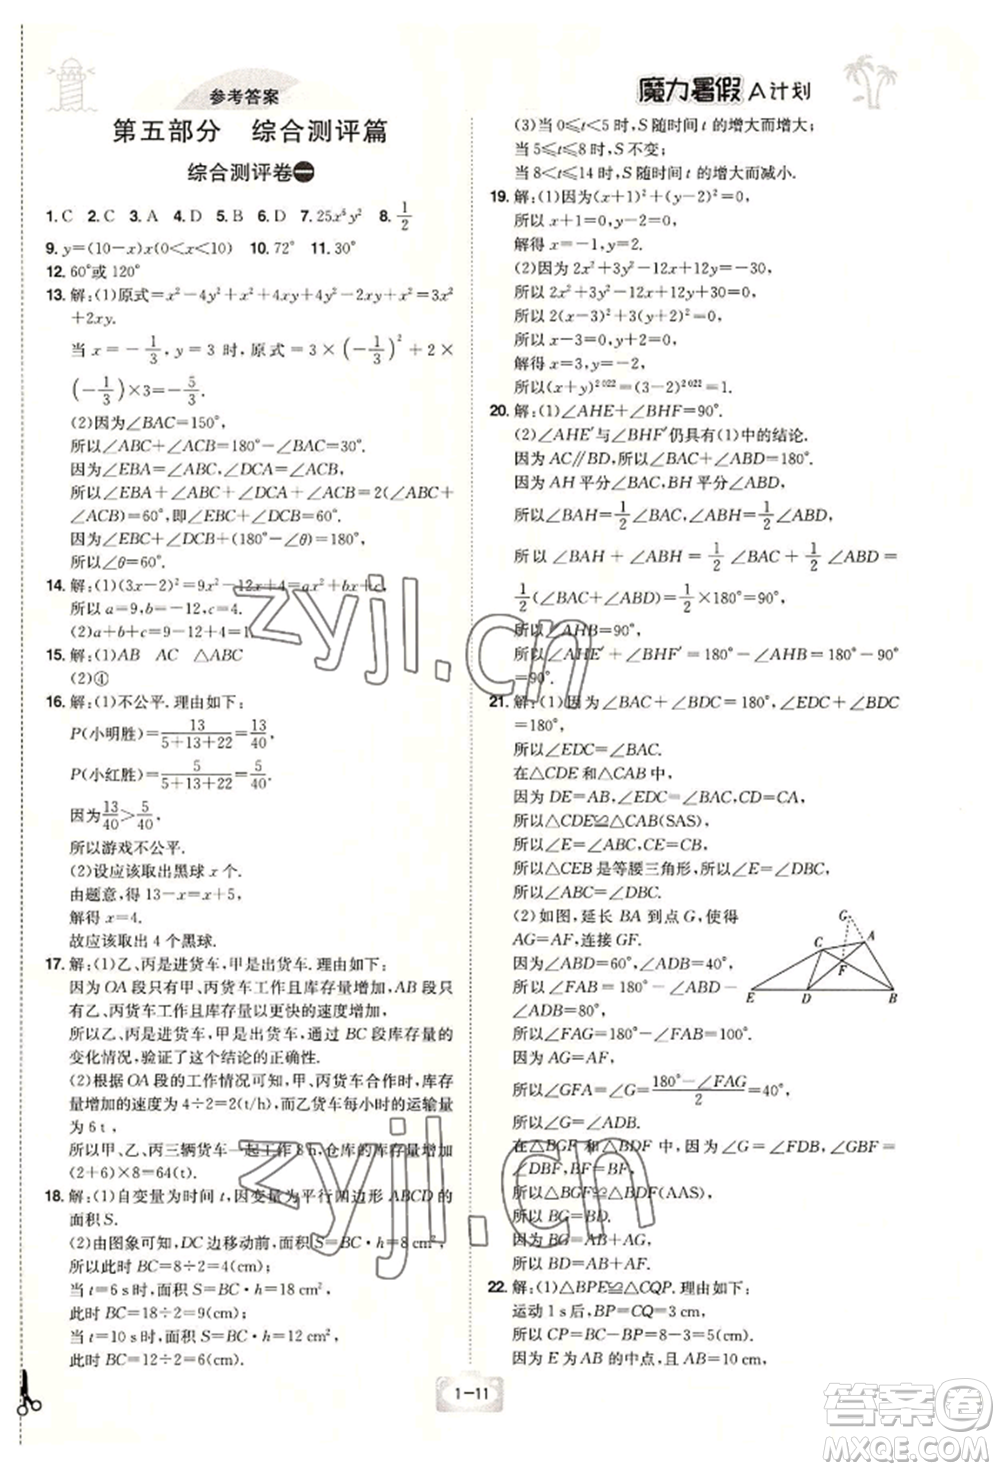 参考答案
魔力暑假 A计划
第五部分 综合测评篇
综合测评卷一
1. C 2. C 3. A 4. D 5. B 6. D 7. 25x⁶y² 8. 1/2
9. y=(10-x)x(0<x<10) 10. 72° 11. 30°
12. 60°或 120°
13. 解:(1)原式=x²-4y²+x²+4xy+4y²+x²-2xy=3x²
+2xy.
当 x=-1/3, y=3 时,原式=3×(-1/3)²+2×
(-1/3)×3=-5/3.
(2)因为∠BAC=150°,
所以∠ABC+∠ACB=180°-∠BAC=30°.
因为∠EBA=∠ABC,∠DCA=∠ACB,
所以∠EBA+∠ABC+∠DCA+∠ACB=2(∠ABC+
∠ACB)=60°,即∠EBC+∠DCB=60°.
因为∠EBC+∠DCB=∠θ,
所以∠θ=60°.
14. 解:(1)(3x-2)²=9x²-12x+4=ax²+bx+c,
所以 a=9,b=-12,c=4.
(2)a+b+c=9-12+4=1.
15. 解:(1)AB AC △ABC
(2)④
16. 解:(1)不公平. 理由如下:
P(小明胜)=13/(5+13+22)=13/40,
P(小红胜)=5/(5+13+22)=5/40,
因为13/40>5/40,
所以游戏不公平.
(2)设应该取出黑球 x 个.
由题意,得 13-x=x+5,
解得 x=4.
故应该取出 4 个黑球.
17. 解:(1)乙、丙是进货车,甲是出货车. 理由如下:
因为 OA 段只有甲、丙货车工作且库存增加,AB 段只
有乙、丙货车工作且库存量以更快的速度增加,
所以乙、丙是进货车,甲是出货车,通过 BC 段库存量的
变化情况,验证了这个结论的正确性.
(2)根据 OA 段的工作情况可知,甲、丙货车合作时,库存
量增加的速度为 4÷2=2(t/h),而乙货车每小时的运输量
为 6 t,
所以甲、乙、丙三辆货车一起工作 8 h,仓库的库存量增加
(2+6)×8=64(t).
18. 解:(1)自变量为时间 t,因变量为平行四边形 ABCD 的
面积 S.
(2)由图象可知,DC 边移动前,面积 S=BC·h=8 cm²,
所以此时 BC=8÷2=4(cm);
当 t=6 s 时,面积 S=BC·h=18 cm²,
此时 BC=18÷2=9(cm);
当 t=10 s 时,面积 S=BC·h=12 cm²,
此时 BC=12÷2=6(cm).
(3)当 0≤t<5 时,S 随时间 t 的增大而增大;
当 5≤t≤8 时,S 不变;
当 8<t≤14 时,S 随时间 t 的增大而减小.
19. 解:(1)因为(x+1)²+(y-2)²=0,
所以 x+1=0,y-2=0,
解得 x=-1,y=2.
(2)因为 2x²+3y²-12x+12y+30=0,
所以 2x²-12x+18+3y²+12y+12=0,
所以 2(x-3)²+3(y+2)²=0,
所以 x-3=0,y+2=0,
解得 x=3,y=-2,
所以(x+y)²⁰²²=(3-2)²⁰²²=1.
20. 解:(1)∠AHE+∠BHF=90°.
(2)∠AHE′与∠BHF′仍具有(1)中的结论.
因为 AC∥BD,所以∠BAC+∠ABD=180°.
因为 AH 平分∠BAC,BH 平分∠ABD,
所以∠BAH=1/2∠BAC,∠ABH=1/2∠ABD,
所以∠BAH+∠ABH=1/2∠BAC+1/2∠ABD=
1/2(∠BAC+∠ABD)=1/2×180°=90°,
所以∠AHB=90°,
所以∠AHE′+∠BHF′=180°-∠AHB=180°-90°
=90°.
21. 解:(1)因为∠BAC+∠BDC=180°,∠EDC+∠BDC
=180°,
所以∠EDC=∠BAC.
在△CDE 和△CAB 中,
因为 DE=AB,∠EDC=∠BAC,CD=CA,
所以△CDE≌△CAB(SAS),
所以∠E=∠ABC,CE=CB,
所以△CEB 是等腰三角形,所以∠E=∠DBC,
所以∠ABC=∠DBC.
(2)如图,延长 BA 到点 G,使得
AG=AF,连接 GF.
所以∠FAB=180°-∠ABD
=∠ADB=80°,
所以∠FAG=180°-80°=100°.
因为 AG=AF,
所以∠GFA=∠G=(180°-∠FAG)/2=40°,
所以∠G=∠ADB.
在△BGF 和△BDF 中,因为∠G=∠FDB,∠ABF=
∠DBF,BF=BF,
所以△BGF≌△BDF(AAS),
所以 BG=BD.
因为 BG=BA+AG,
所以 BD=BA+AF.
G
C
A
F
E
D
B
22. 解:(1)△BPE≌△CQP. 理由如下:
运动 1 s 后,BP=CQ=3 cm,
所以 CP=BC-BP=8-3=5(cm).
因为 E 为 AB 的中点,AB=10 cm,
1-11
zyjl.cn
zyjl.cn
答案圈
MXQE.COM